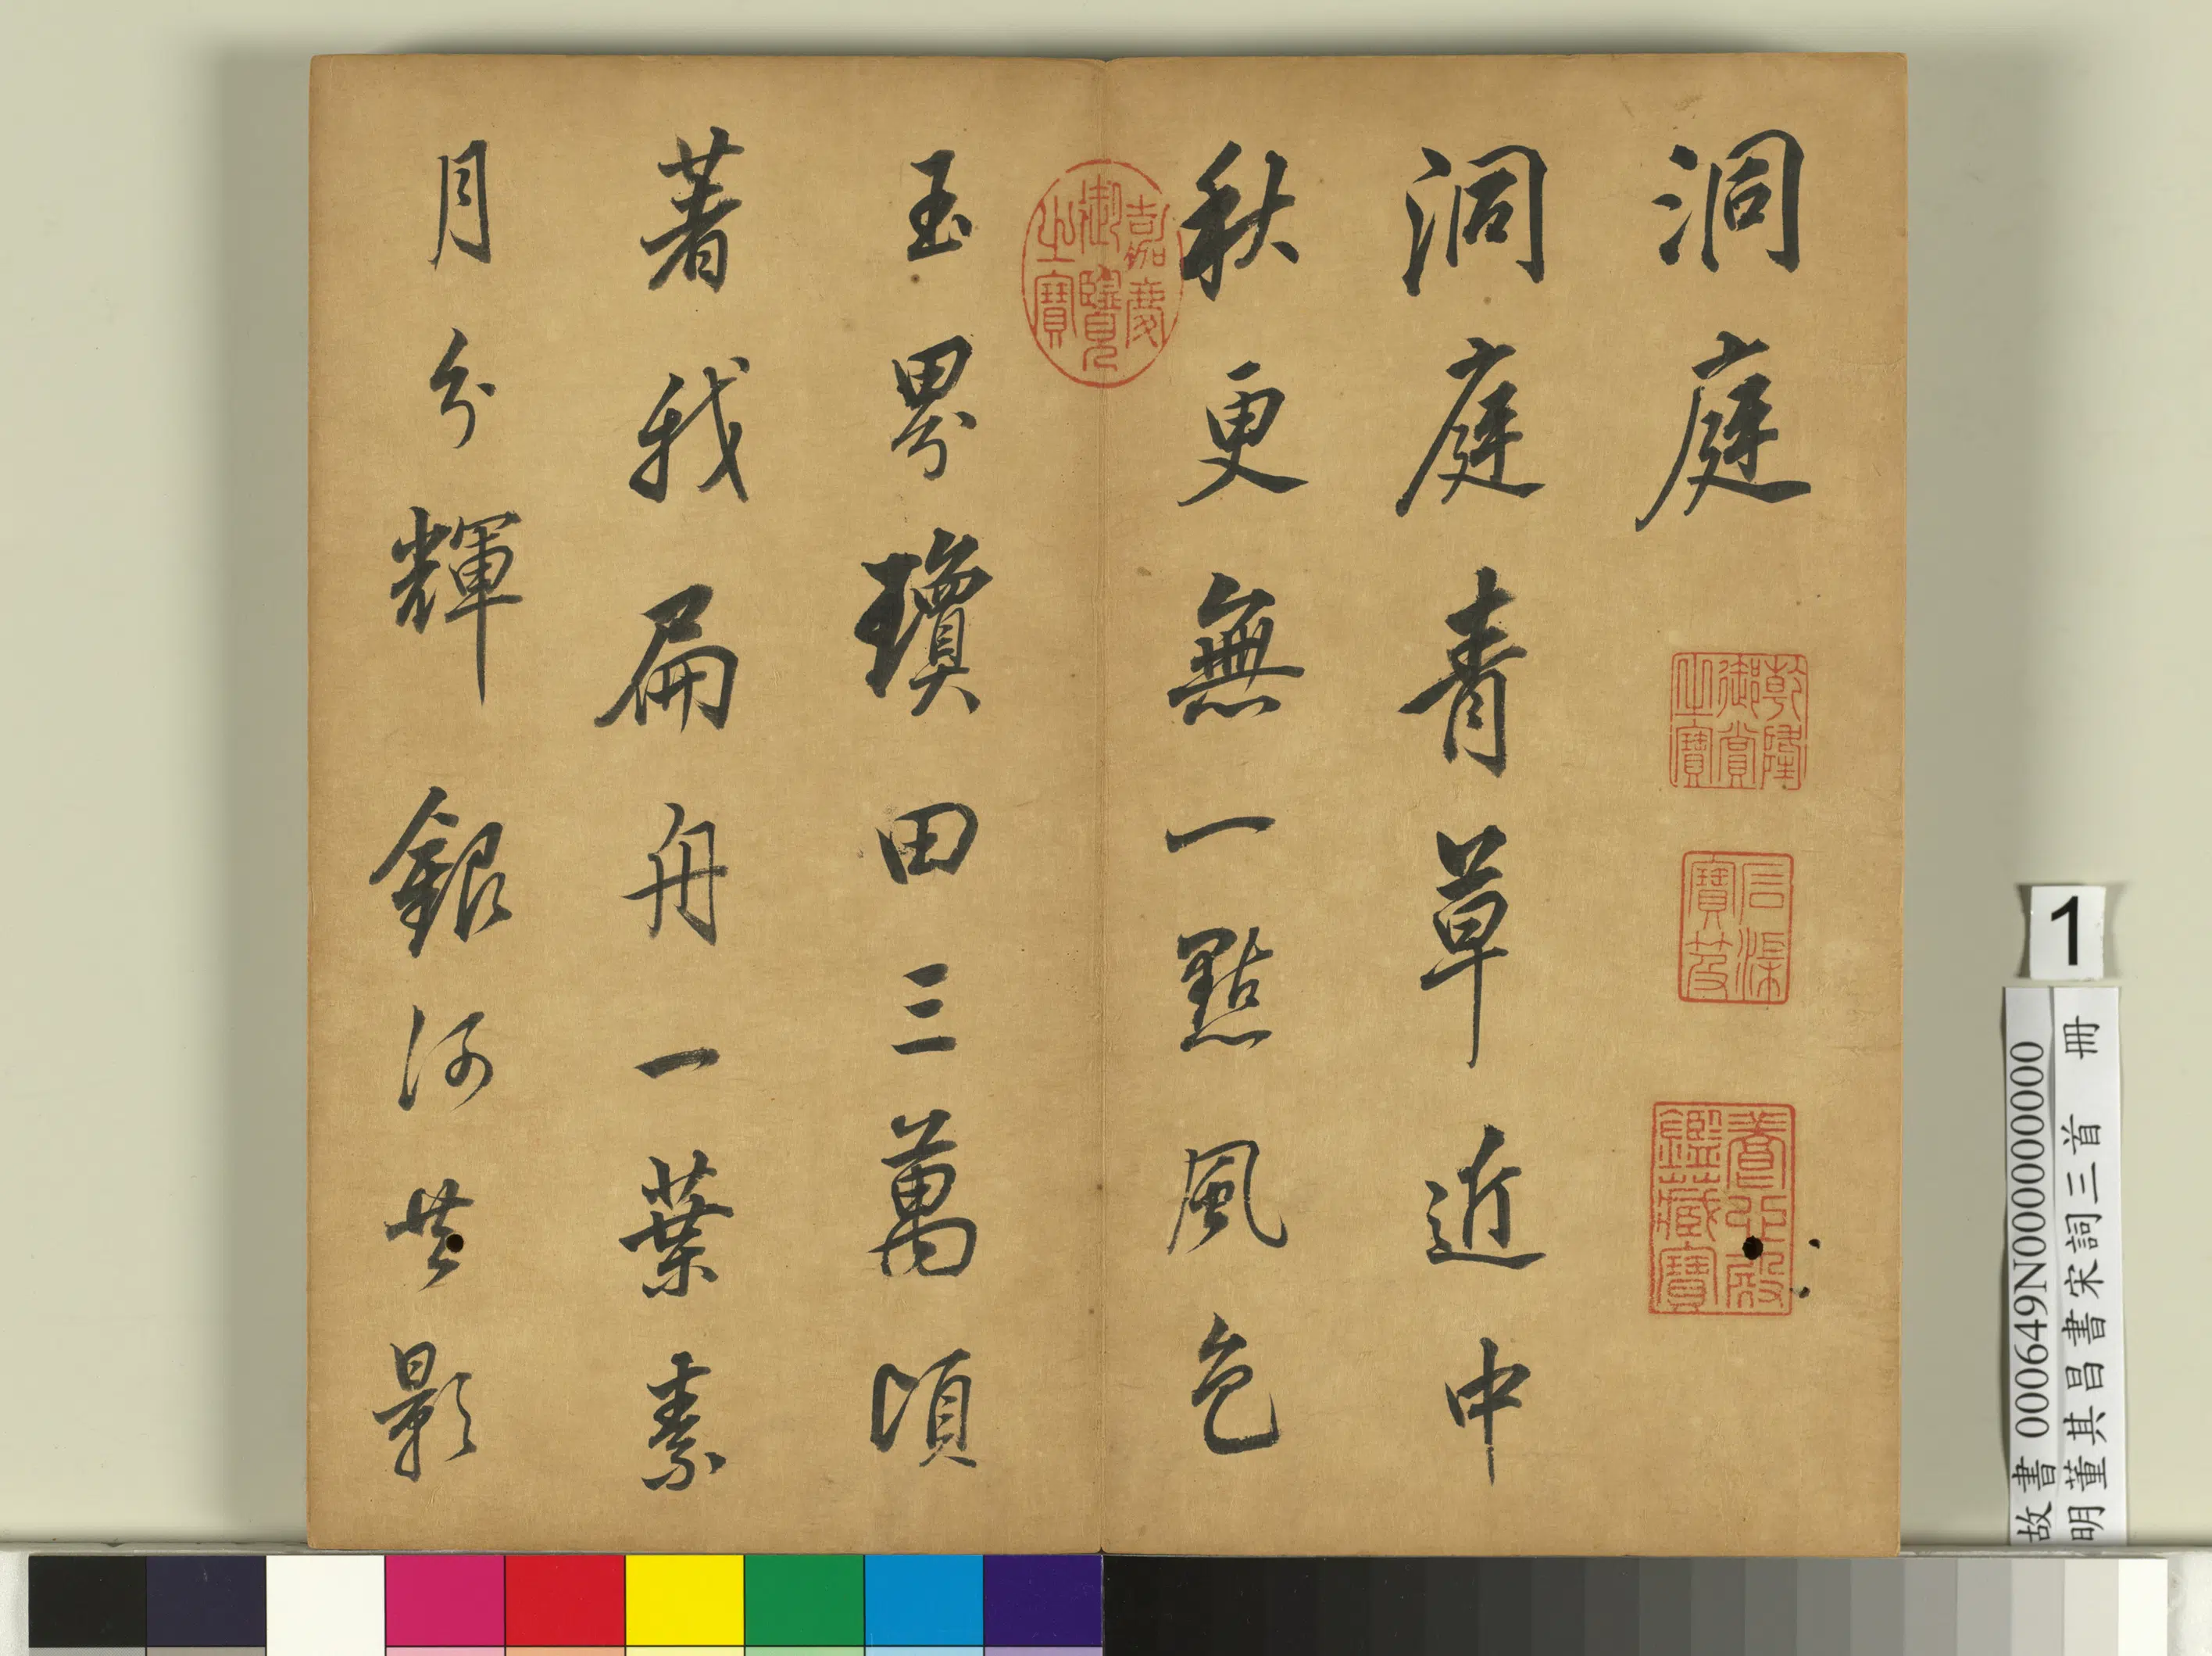 洞庭
洞庭青草近中
秋更無一點風色
玉界瓊田三萬頃
著我扁舟一葉素
月分輝銀河共影
乾隆御賞之寶
石渠寶笈
養心殿鑑藏寶
嘉慶御覽之寶
1
故書 000649N000000000
明董其昌書宋詞三首 冊